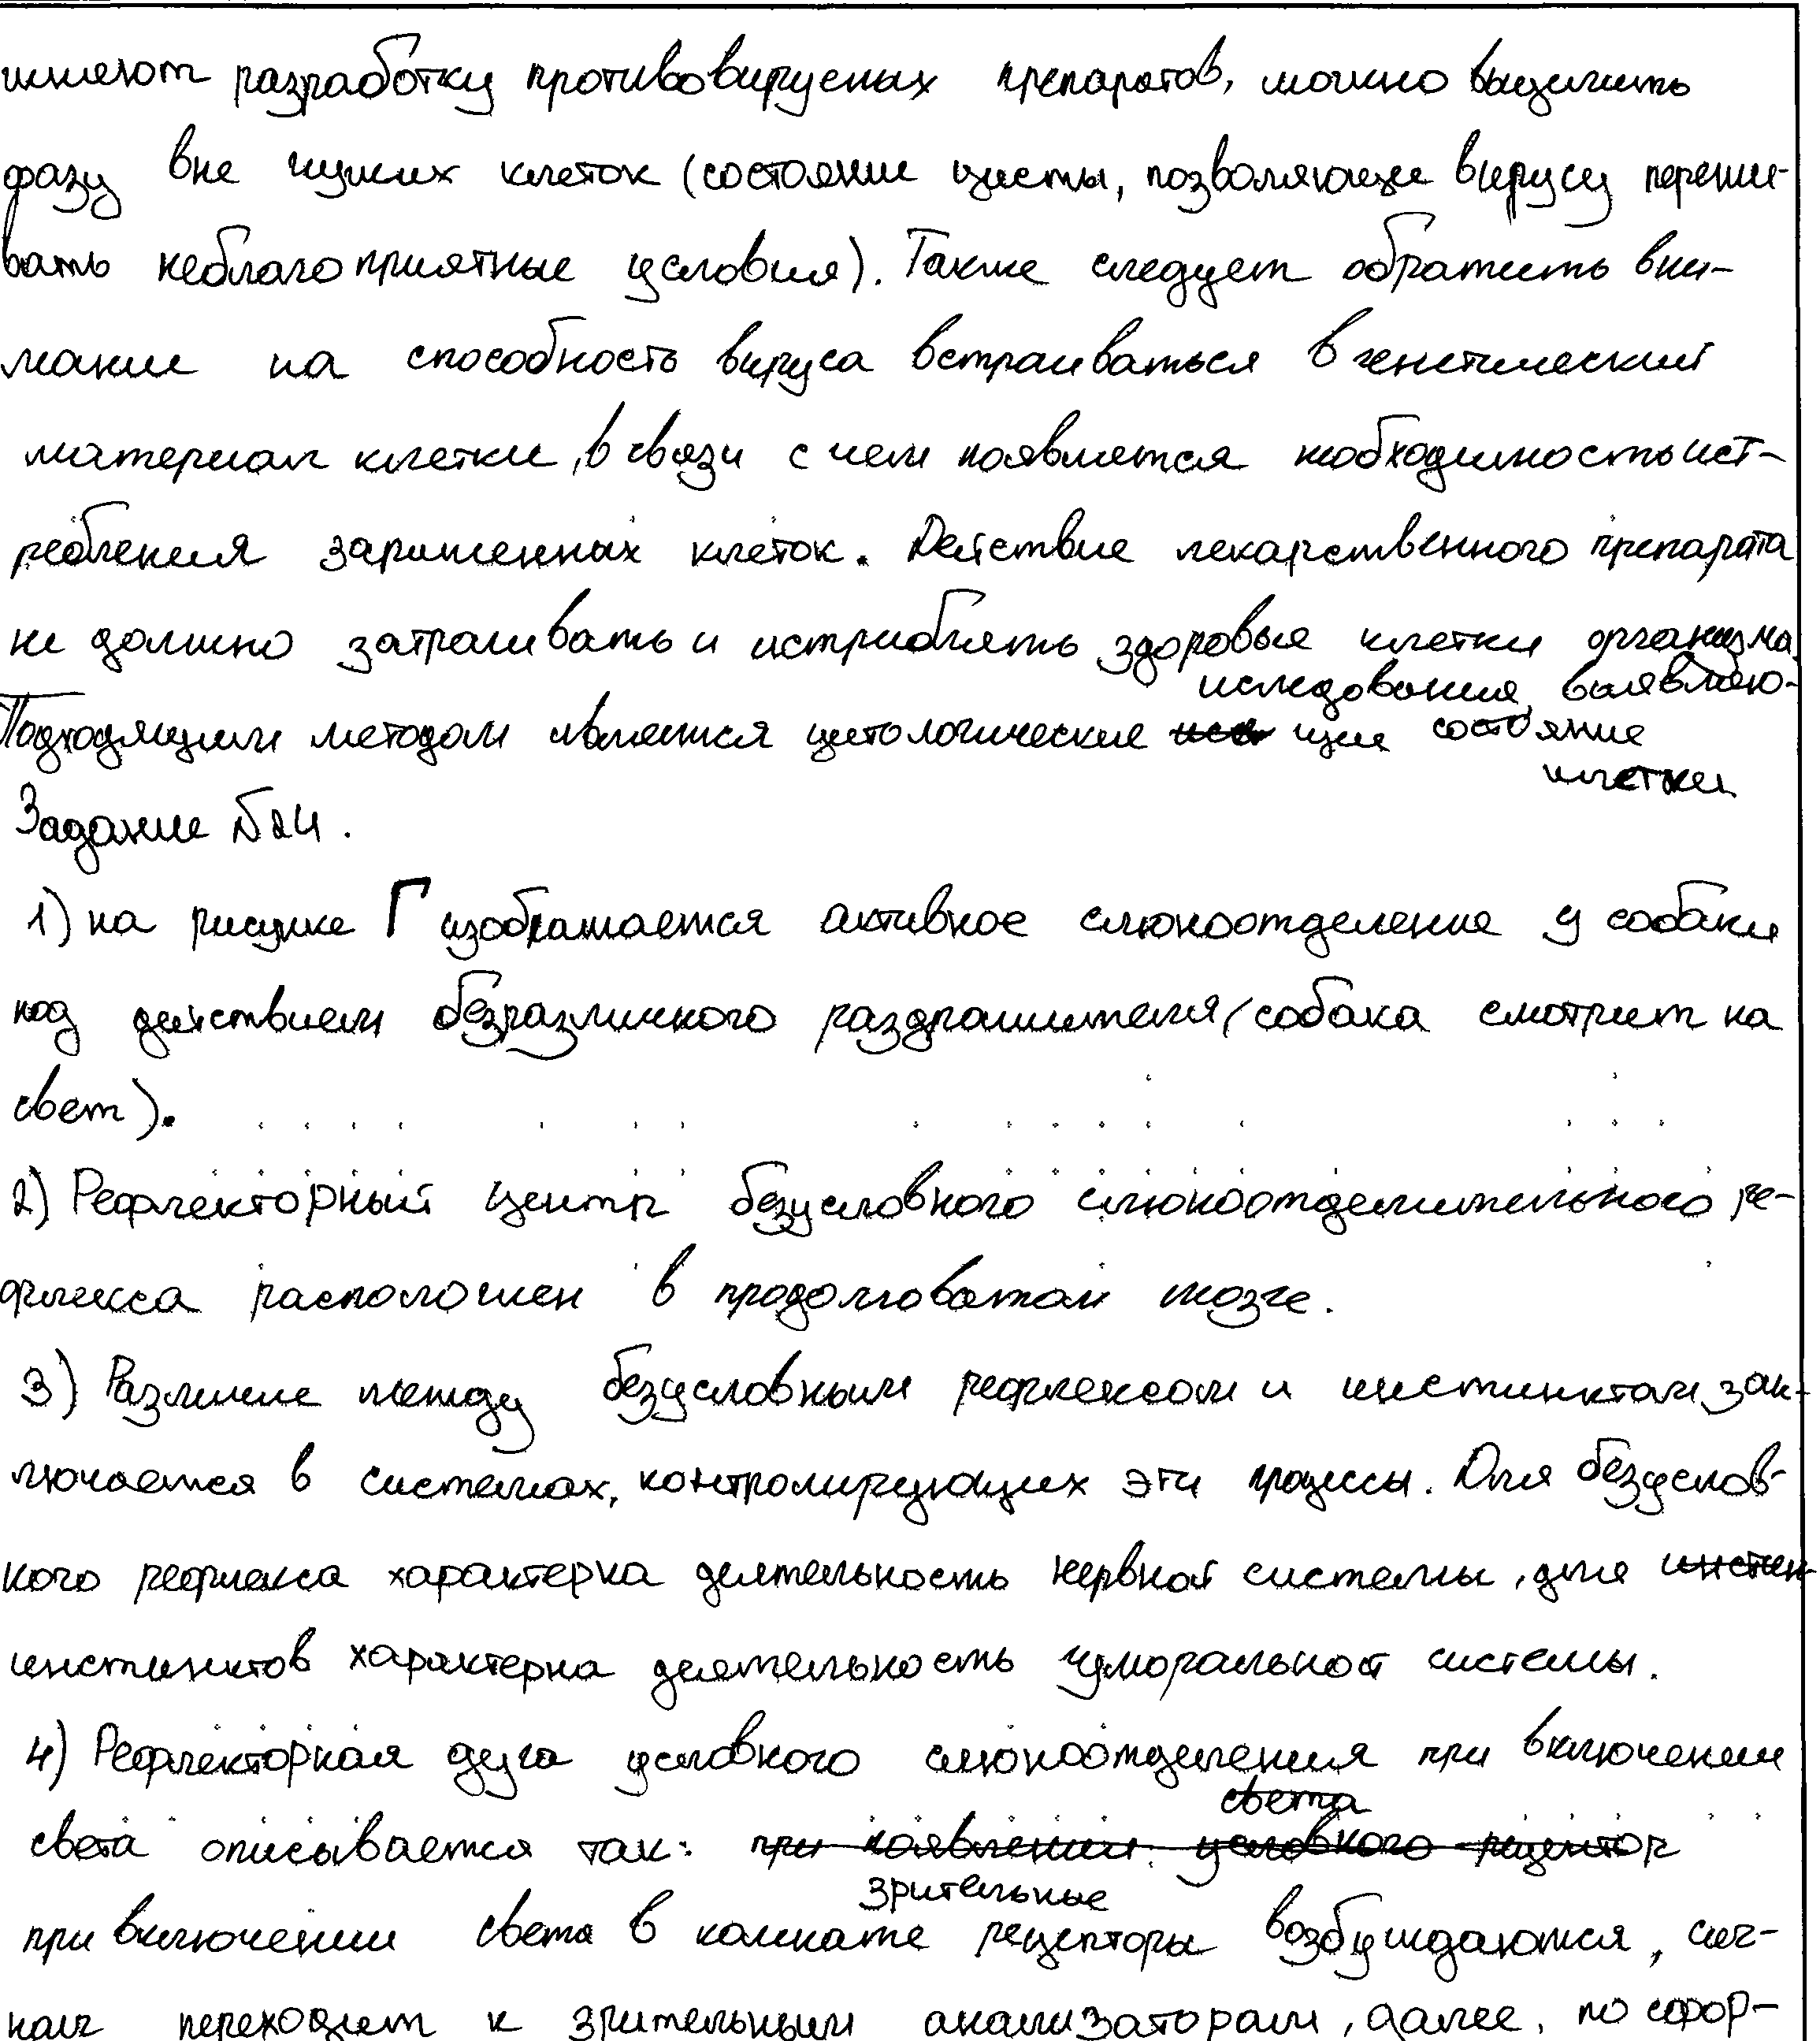 шняют разработку противовирусных препаратов, можно выделить
фазу вне чужих клеток (состояние цисты, позволяющее вирусу пережи-
вать неблагоприятные условия). Также следует обратить вни-
мание на способность вируса встраиваться в генетический
материал клетки, в связи с чем появляется необходимость ист-
ребления зараженных клеток. Действие лекарственного препарата
не должно затрагивать и истриблять здоровые клетки организма.
Подходящим методом является цитологические исследования, выявляю-
щие состояние
клетки
Задание №24.
1) на рисунке Г изображается активное слюноотделение у собаки
под действием безразличного раздражителя (собака смотрит на
свет).
2) Рефлекторный центр безусловного слюноотделительного ре-
флекса расположен в продолговатом мозге.
3) Различие между безусловным рефлексом и инстинктом зак-
лючается в системах, контролирующих эти процессы. Для безуслов-
ного рефлекса характерна деятельность нервной системы, для инстин
инстинктов характерна деятельность гуморальной системы.
4) Рефлекторная дуга условного слюноотделения при включении
света описывается так: при появлении условного рецептор
света
при включении света в комнате зрительные рецепторы возбуждаются, сиг-
нал переходит к зрительным анализаторам, далее, по сфор-